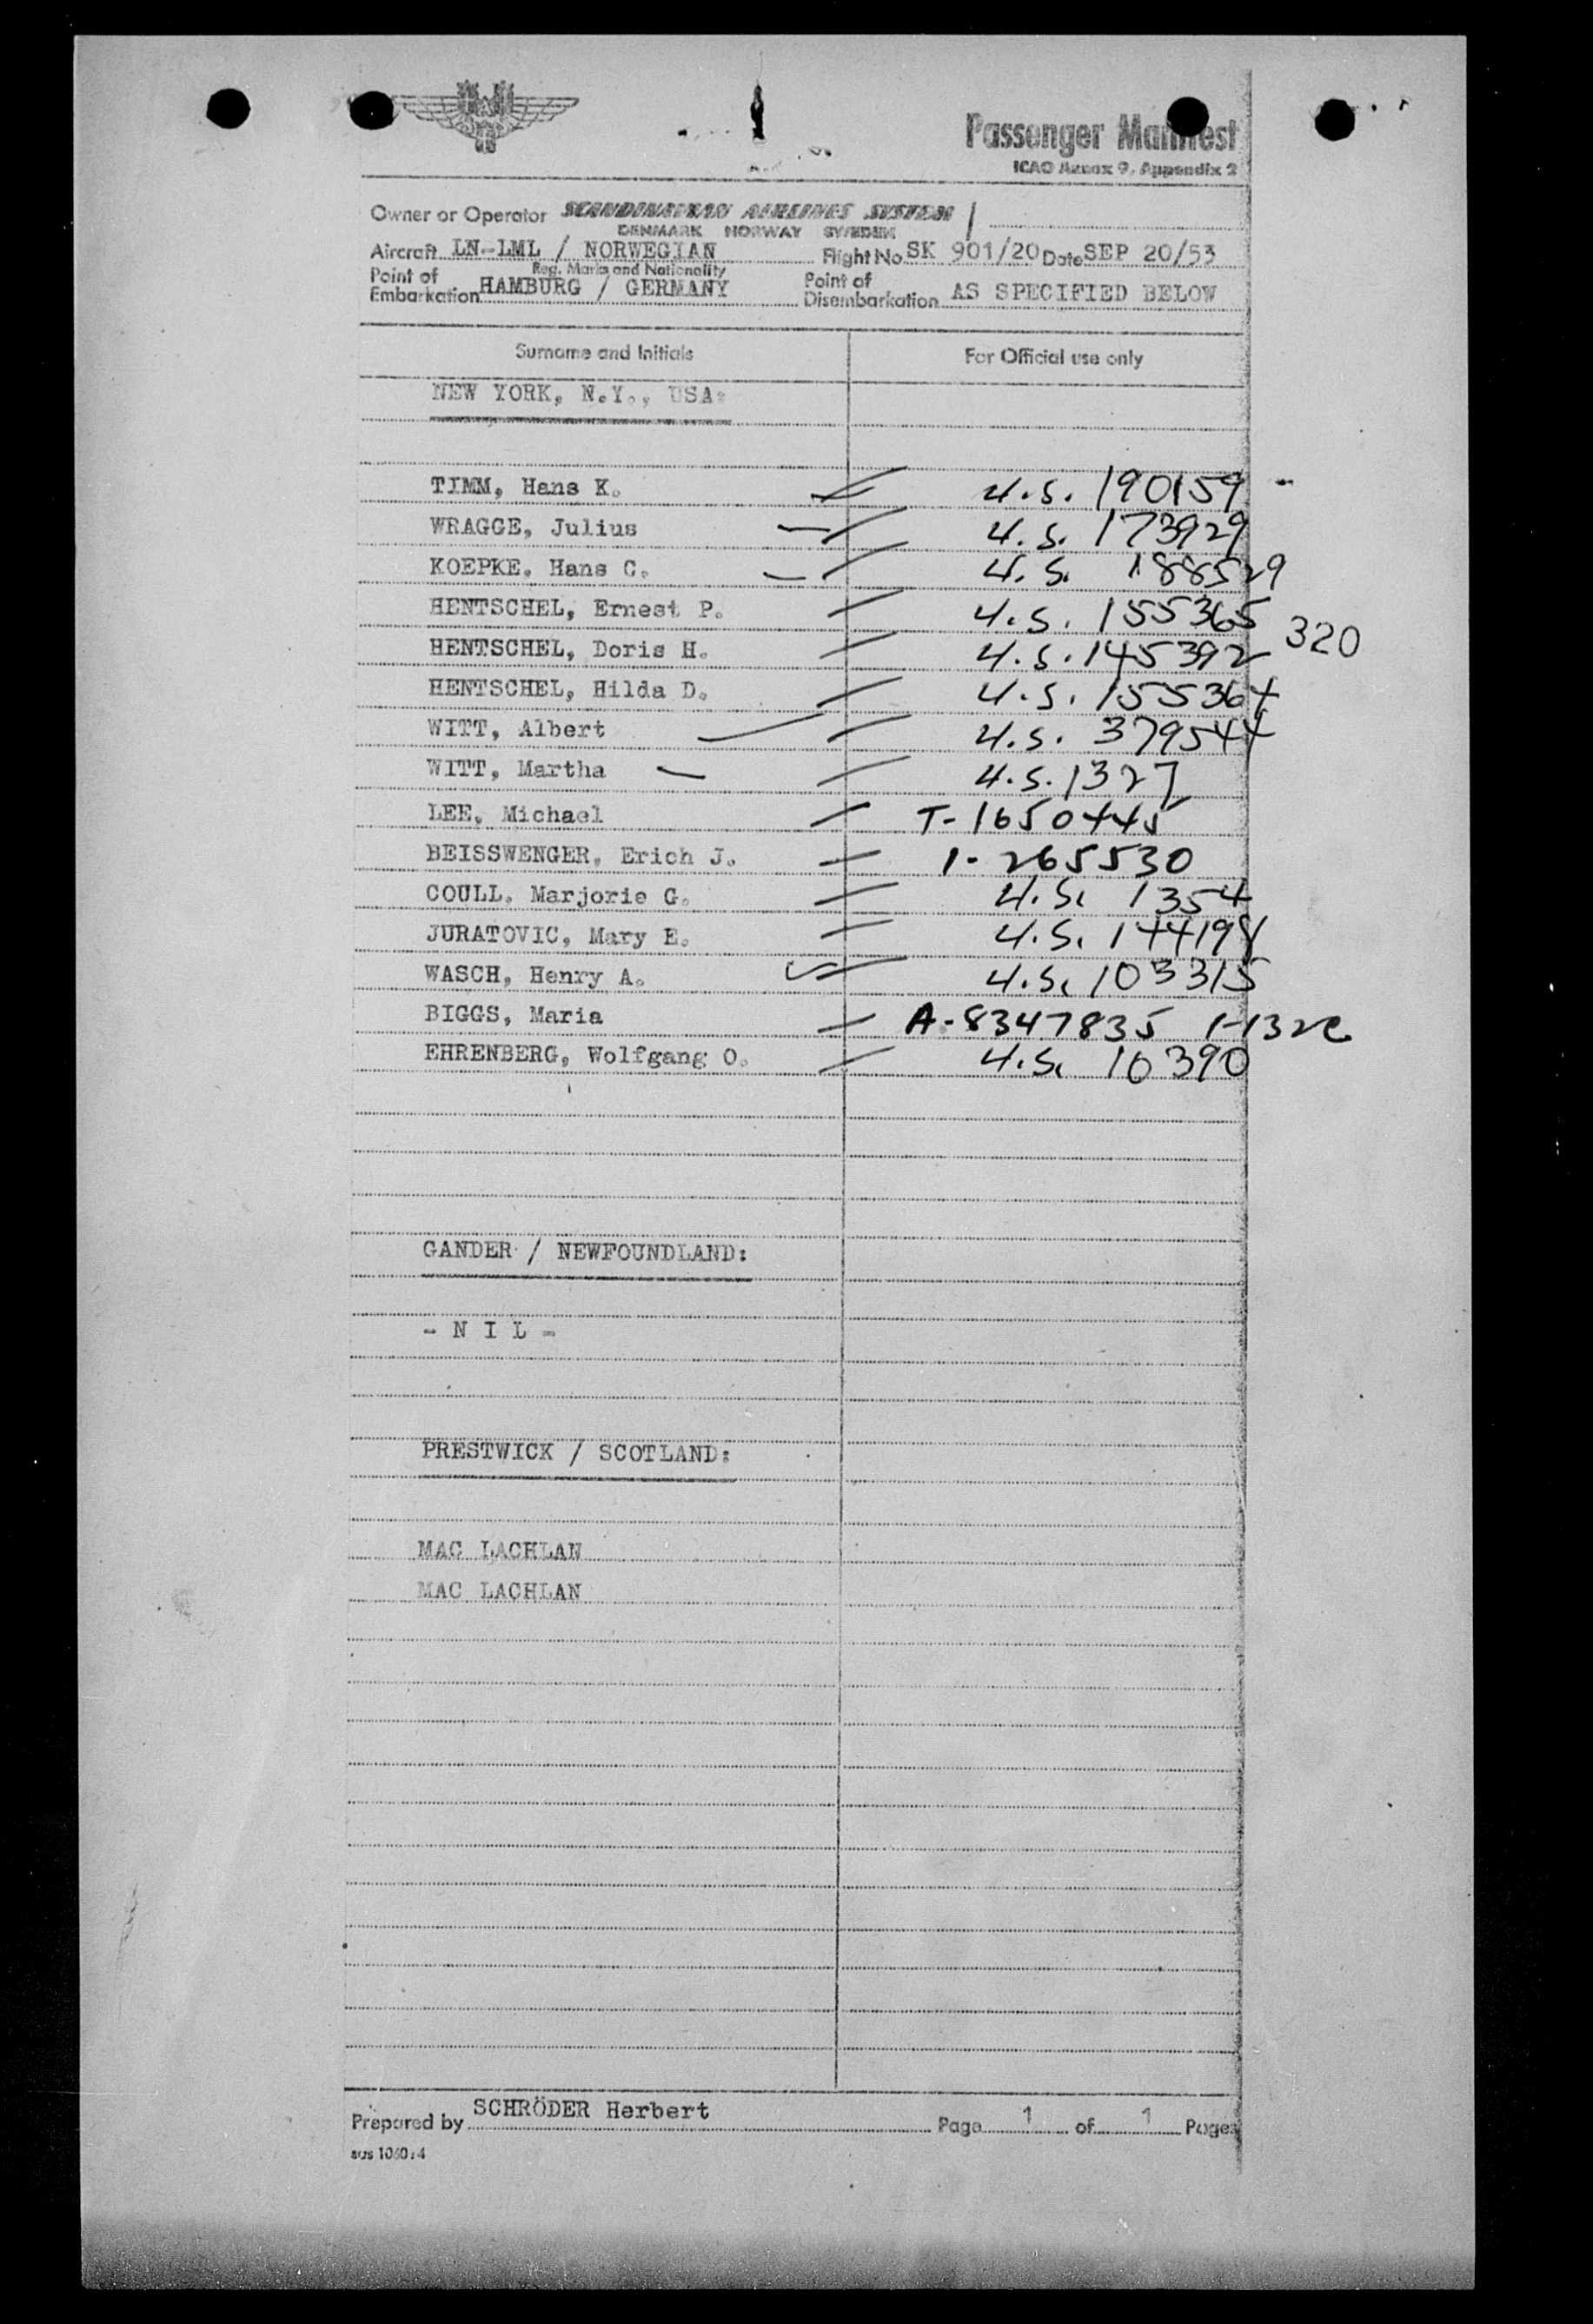 Passenger Manifest
ICAO Annex 9, Appendix 2
Owner or Operator SCANDINAVIAN AIRLINES SYSTEM
DENMARK NORWAY SWEDEN
Aircraft LN-LML / NORWEGIAN Flight No. SK 901/20 Date SEP 20/53
Reg. Marks and Nationality
Point of Embarkation HAMBURG / GERMANY Point of Disembarkation AS SPECIFIED BELOW
Surname and Initials For Official use only
NEW YORK, N.Y., USA:
TIMM, Hans K. U.S. 190159
WRAGGE, Julius U.S. 173929
KOEPKE, Hans C. U.S. 188529
HENTSCHEL, Ernest P. U.S. 155365
320
HENTSCHEL, Doris H. U.S. 145392
HENTSCHEL, Hilda D. U.S. 155364
WITT, Albert U.S. 379544
WITT, Martha U.S. 1327
LEE, Michael T-1650445
BEISSWENGER, Erich J. 1-265530
COULL, Marjorie G. U.S. 1354
JURATOVIC, Mary E. U.S. 144198
WASCH, Henry A. U.S. 103315
BIGGS, Maria A-8347835
EHRENBERG, Wolfgang O. U.S. 10390
GANDER / NEWFOUNDLAND:
- N I L -
PRESTWICK / SCOTLAND:
MAC LACHLAN
MAC LACHLAN
Prepared by SCHRÖDER Herbert Page 1 of 1 Pages
sas 1060:4